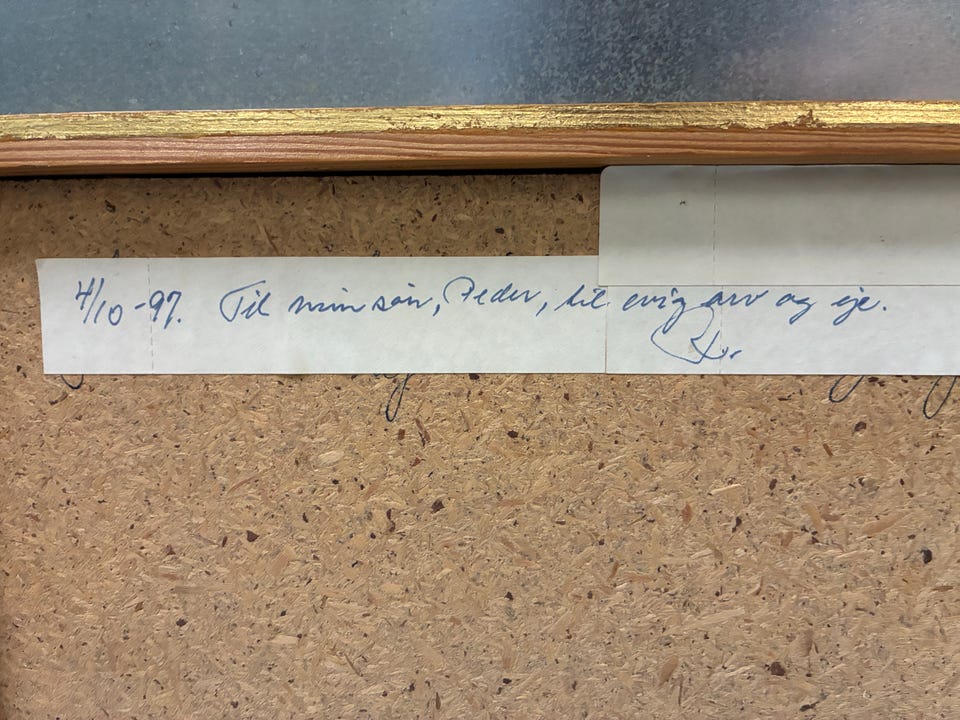 4/10-97. Til min søn, Peder, til evig arv og eje.